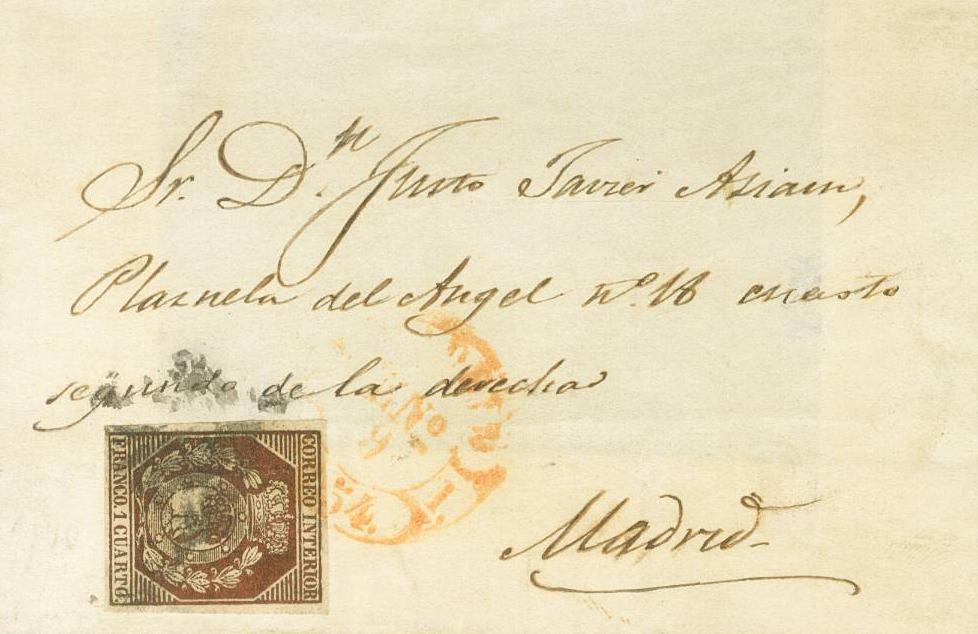 Sr. Dn. Justo Javier Asiain,
Plazuela del Angel nº. 18 cuarto
segundo de la derecha
Madrid
CORREO INTERIOR
FRANCO. 1 CUARTO.